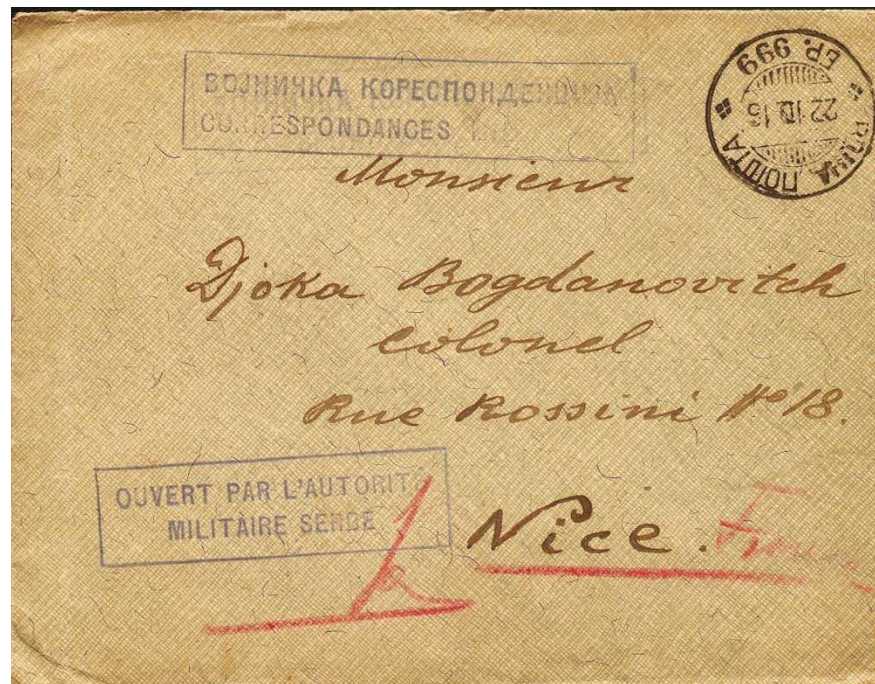 ВОЈНИЧКА КОРЕСПОНДЕНЦИЈА
CORRESPONDANCES
ПОШТА
БР. 999
22 IV 16
Monsieur
Djoka Bogdanovitch
Colonel
Rue Rossini Nº 18.
OUVERT PAR L'AUTORITÉ
MILITAIRE SERBE
Nice.